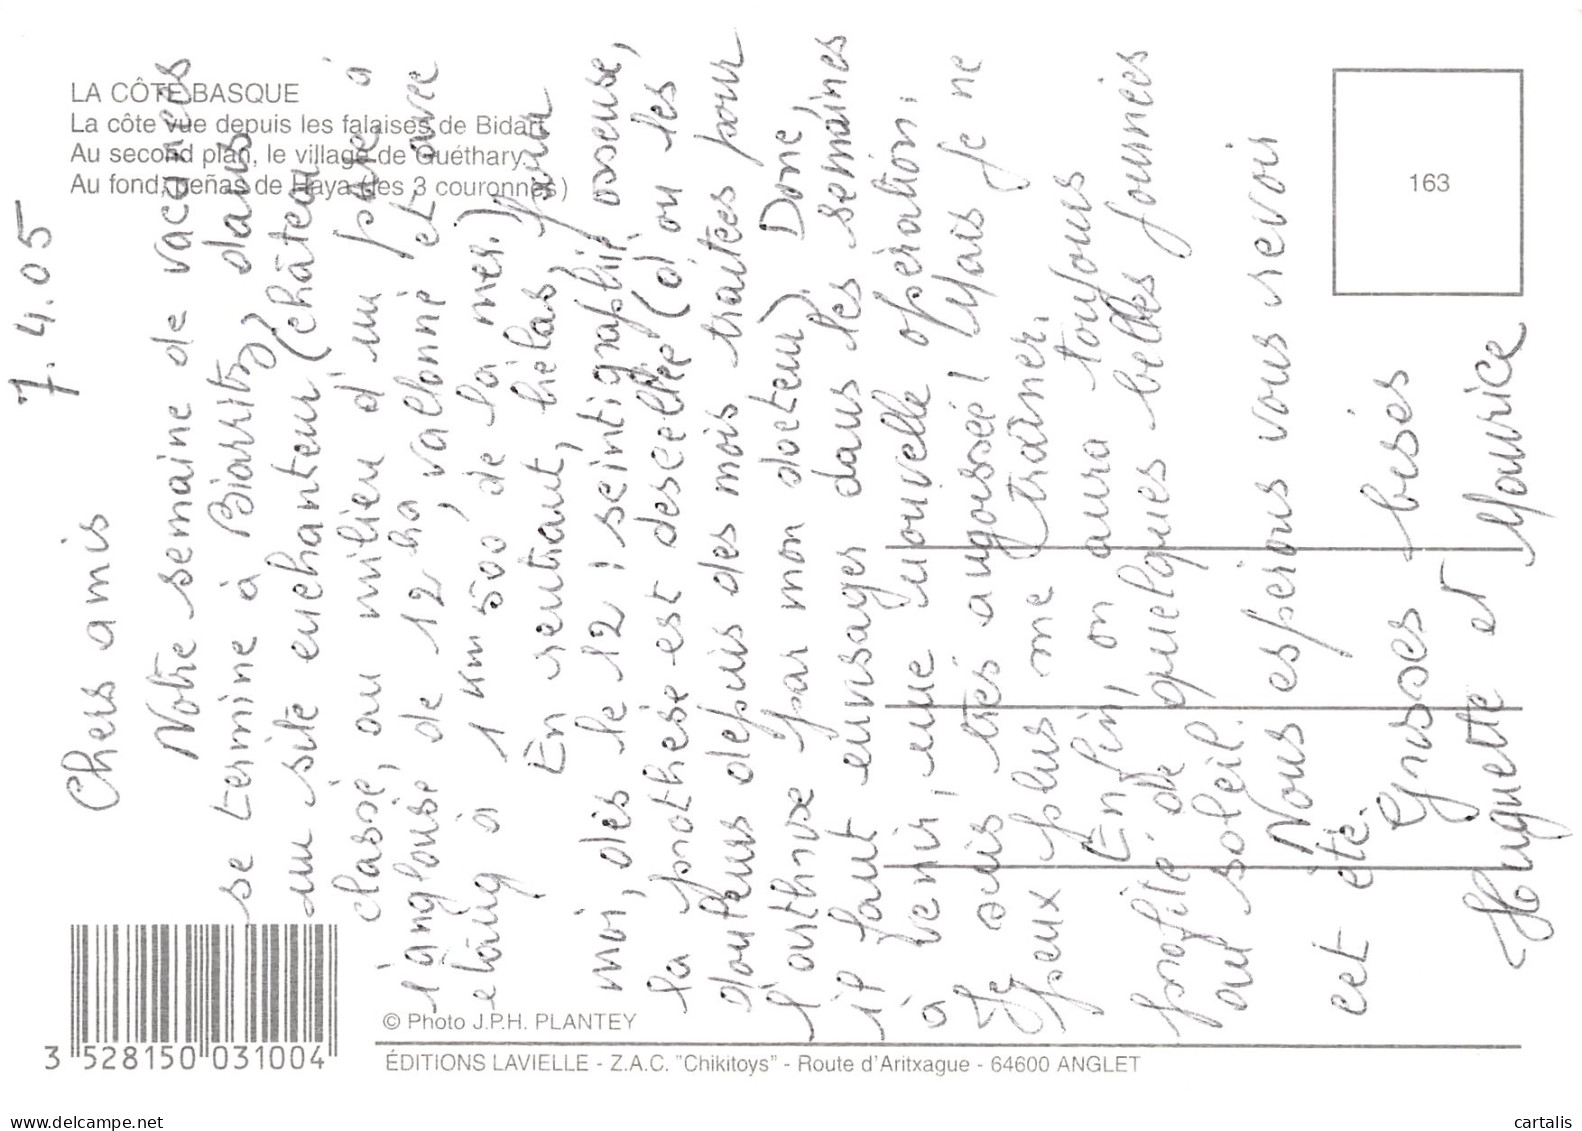 LA CÔTE BASQUE
La côte vue depuis les falaises de Bidart
Au second plan, le village de Guéthary.
Au fond, peñas de Haya (les 3 couronnes)
163
7.4.05
Chers amis
Notre semaine de vacances
se termine à Biarritz, dans
un site enchanteur (château
classé, au milieu d'un parc à
l'anglaise de 12 ha, vallonné et avec
étang à 1 km 500 de la mer.)
En rentrant, hélas, pour
moi, dès le 12 : scintigraphie osseuse,
la prothèse est descellée (d'où les
douleurs depuis des mois traitées pour
l'arthrose par mon docteur). Donc
il faut envisager dans les semaines
à venir, une nouvelle opération.
Je suis très angoissée ! Mais je ne
peux plus me traîner.
Enfin, on aura toujours
profité de quelques belles journées
au soleil.
Nous espérons vous revoir
cet été.
Grosses bises
Huguette et Maurice
© Photo J.P.H. PLANTEY
ÉDITIONS LAVIELLE - Z.A.C. "Chikitoys" - Route d'Aritxague - 64600 ANGLET
3 528150 031004
www.delcampe.net
cartalis